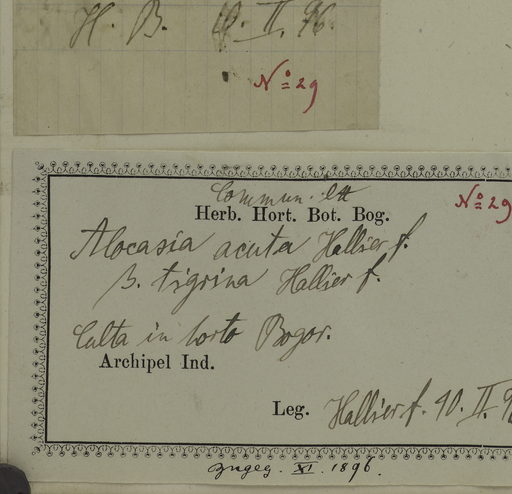 H. B. 10. II. 96.
Nº 29
Commun. ex
Nº 29
Herb. Hort. Bot. Bog.
Alocasia acuta Hallier f.
β. tigrina Hallier f.
Culta in horto Bogor.
Archipel Ind.
Leg. Hallier f. 10. II. 96
XI. 1896.